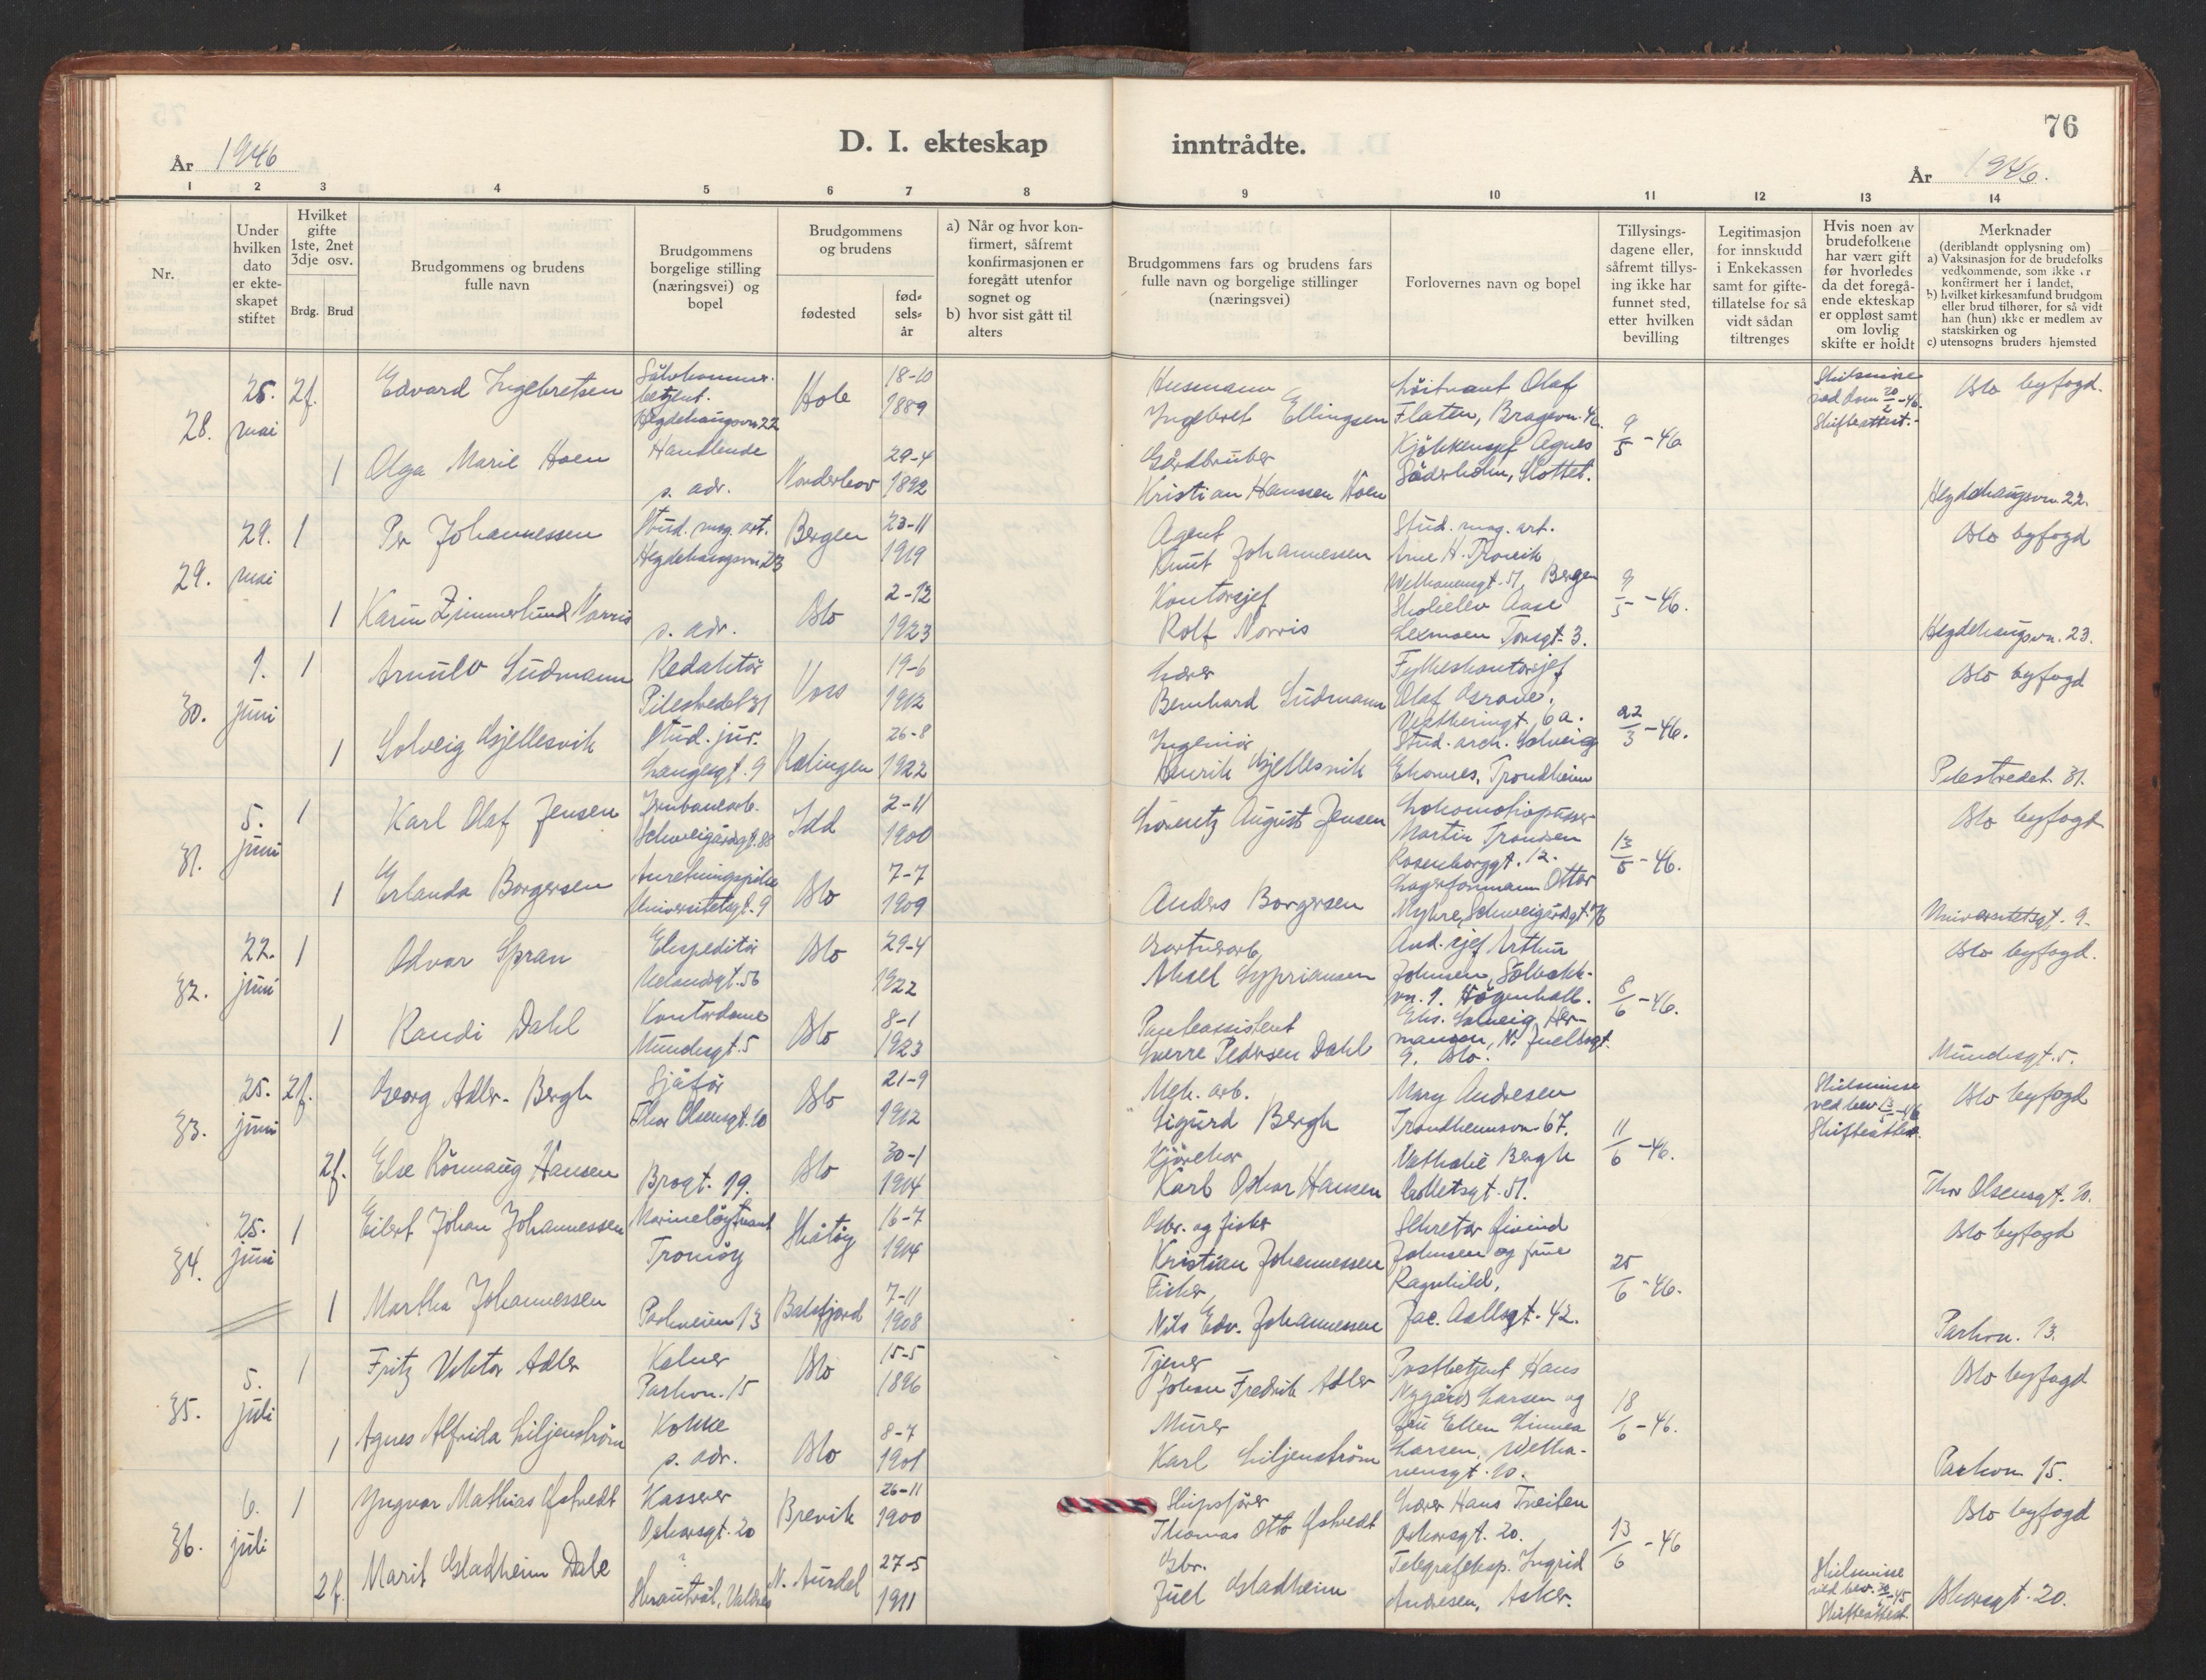 75
76
D. I. ekteskap inntrådte.
År 1946
År 1946.
1 2 3 4 5 6 7 8 9 10 11 12 13 14
Nr.
Under
hvilken
dato
er ekte-
skapet
stiftet
Hvilket
gifte
1ste, 2net
3dje osv.
Brdg. Brud
Brudgommens og brudens
fulle navn
Brudgommens
borgelige stilling
(næringsvei) og
bopel
Brudgommens
og brudens
fødested
fød-
sels-
år
a) Når og hvor kon-
firmert, såfremt
konfirmasjonen er
foregått utenfor
sognet og
b) hvor sist gått til
alters
Brudgommens fars og brudens fars
fulle navn og borgelige stillinger
(næringsvei)
Forlovernes navn og bopel
Tillysings-
dagene eller,
såfremt tillys-
ing ikke har
funnet sted,
etter hvilken
bevilling
Legitimasjon
for innskudd
i Enkekassen
samt for gifte-
tillatelse for så
vidt sådan
tiltrenges
Hvis noen av
brudefolkene
har vært gift
før hvorledes
da det foregå-
ende ekteskap
er oppløst samt
om lovlig
skifte er holdt
Merknader
(deriblandt opplysning om)
a) Vaksinasjon for de brudefolks
vedkommende, som ikke er
konfirmert her i landet,
b) hvilket kirkesamfund brudgom
eller brud tilhører, for så vidt
han (hun) ikke er medlem av
statskirken og
c) utensogns bruders hjemsted
28.
25.
mai
2f.
Edvard Ingebretsen
betjent.
Hegdehaugsvn 22
Hole
18-10
1889
Husmann
Ingebret Ellingsen
Löitnant Olaf
Flaten, Bragevn. 4c.
9/5 - 46
Skilsmisse
ved dom 20/2 - 46.
Skifteattest.
Oslo byfogd.
1
Olga Marie Hoen
Handlende
s. adr.
Norderhov
29-4
1892
Gårdbruker
Kristian Hanssen Hoen
Agnes
Söderholm, Slottet.
Hegdehaugsvn. 22.
29.
29.
mai
1
Per Johannessen
Stud. mag. art.
Hegdehaugsvn 23
Bergen
23-11
1919
Agent
Knut Johannessen
Stud. mag. art.
Arne H.
Welhavensgt. 51, Bergen
9/5 - 46.
Oslo byfogd
1
Karin Zimmerlund Norris
s. adr.
Oslo
2-12
1923
Kontorsjef
Rolf Norris
Skoleelev Aase
Torsgt. 3.
Hegdehaugsvn. 23.
30.
1.
juni
1
Arnulv Sudmann
Redaktör
Pilestredet 31
Voss
19-6
1912
Lærer
Bernhard Sudmann
Fylkeskontorsjef
Olaf
6a.
22/3 - 46.
Oslo byfogd
1
Solveig Gjellesvik
Stud. jur.
Langesgt. 9
Rælingen
26-8
1922
Ingeniör
Henrik Gjellesvik
Stud. arch. Solveig
Ekornes, Trondheim
Pilestredet 31.
31.
5.
juni
1
Karl Olaf Jensen
Jernbanearb.
Schweigårdsgt. 88
Idd
2-11
1900
Lorentz August Jensen
Lokomotivpusser
Martin Trondsen
Rosenborggt. 12.
13/5 - 46.
Oslo byfogd
1
Erlanda Borgersen
Anretningspike
Universitetsgt. 9
Oslo
7-7
1909
Anders Borgersen
Lagerformann Ottar
Myhre, Schweigårdsgt. 76
Universitetsgt. 9.
32.
22.
juni
1
Odvar Spran
Ekspeditör
Uelandsgt. 56
Oslo
29-4
1922
Gartnerarb.
Aksel Sypriansen
And. sjef Arthur
Johnsen, Solbakk-
vn. 1. Högenhall.
8/6 - 46.
Oslo byfogd.
1
Randi Dahl
Kontordame
Munchsgt. 5
Oslo
8-1
1923
Bankassistent
Sverre Pedersen Dahl
Eks. Solveig Her-
mansen, N. Juelsgt.
9. Oslo.
Munchsgt. 5.
33.
25.
juni
2f.
Georg Adler-Bergh
Sjåför
Thor Olsensgt. 10
Oslo
21-9
1912
Mek. arb.
Sigurd Bergh
Mary Andresen
Trondheimsvn. 67.
11/6 - 46.
Skilsmisse
ved bev.
Skifteattest.
Oslo byfogd
2f.
Else Rönnaug Hansen
Brogt. 19.
Oslo
30-1
1914
Kjörekar
Karl Oskar Hansen
Nathalie Bergh
Colletsgt. 51.
Thor Olsensgt. 10.
34.
25.
juni
1
Eilert Johan Johannessen
Marinelöytnant
Tromöy
Skåtöy
16-7
1914
Gbr. og fisker
Kristian Johannessen
Sekretær Eivind
Johnsen og frue
Ragnhild,
Jac. Aallsgt. 42.
25/6 - 46.
Oslo byfogd
1
Martha Johannessen
Parkveien 13
Balsfjord
7-11
1908
Fisker
Nils Edv. Johannessen
Parkvn. 13.
35.
5.
juli
1
Fritz Viktor Adler
Kelner
Parkvn. 15
Oslo
15-5
1896
Tjener
Johan Fredrik Adler
Postbetjent Hans
Nygård Larsen og
fru Ellen Linnea
Larsen, Welha-
vensgt. 10.
18/6 - 46.
Oslo byfogd
1
Agnes Alfrida Liljenström
Kokke
s. adr.
Oslo
8-7
1901
Murer
Karl Liljenström
Parkvn. 15.
36.
6.
juli
1
Yngvar Mathias Østvedt
Kasserer
Oskarsgt. 20
Brevik
26-11
1900
Skipsförer
Thomas Otto Østvedt
Lærer Hans Tveiten
Oskarsgt. 20.
13/6 - 46
Oslo byfogd
2f.
Marit Gladheim Dale
?
Skrautvål, Valdres
N. Aurdal
27-5
1911
Gbr.
Juel Gladheim
Telegrafeksp. Ingrid
Andresen, Asker.
Skilsmisse
ved bev.
Skifteattest.
Oskarsgt. 20.